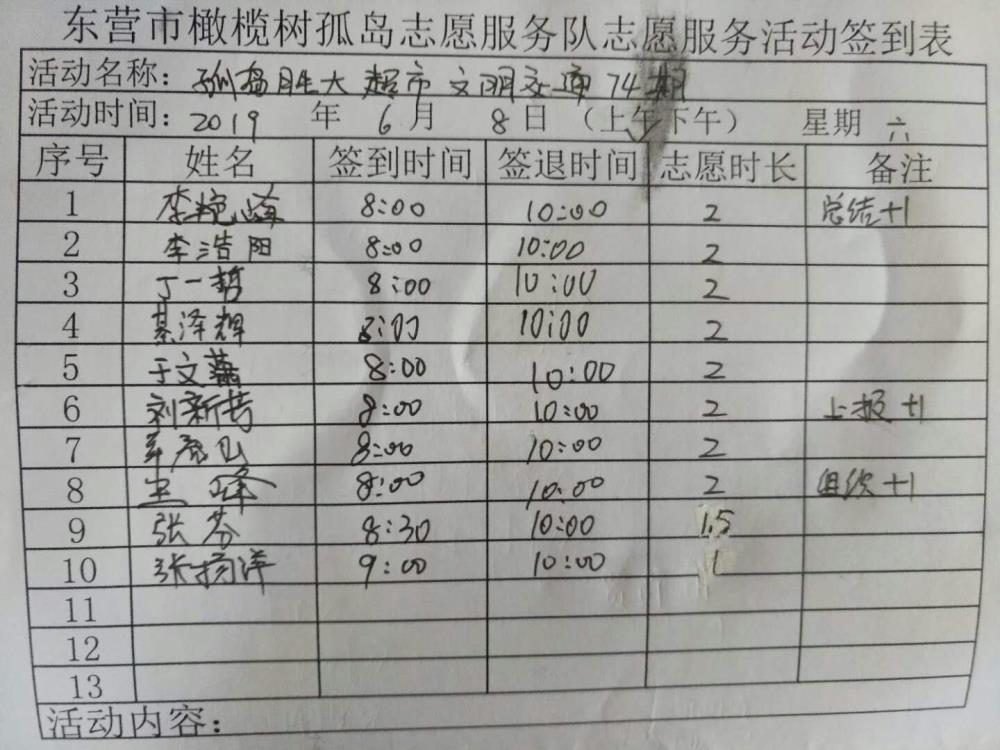 东营市橄榄树孤岛志愿服务队志愿服务活动签到表
活动名称：孤岛胜大超市文明交通74期
活动时间：2019 年 6 月 8 日 （上午下午） 星期 六
序号 姓名 签到时间 签退时间 志愿时长 备注
1 李艳峰 8:00 10:00 2 总结+1
2 李浩阳 8:00 10:00 2
3 丁一哲 8:00 10:00 2
4 綦泽辉 8:00 10:00 2
5 于文藻 8:00 10:00 2
6 刘新芳 8:00 10:00 2 上报+1
7 8:00 10:00 2
8 王峰 8:00 10:00 2 组织+1
9 张芬 8:30 10:00 1.5
10 张扬洋 9:00 10:00 1
11
12
13
活动内容：